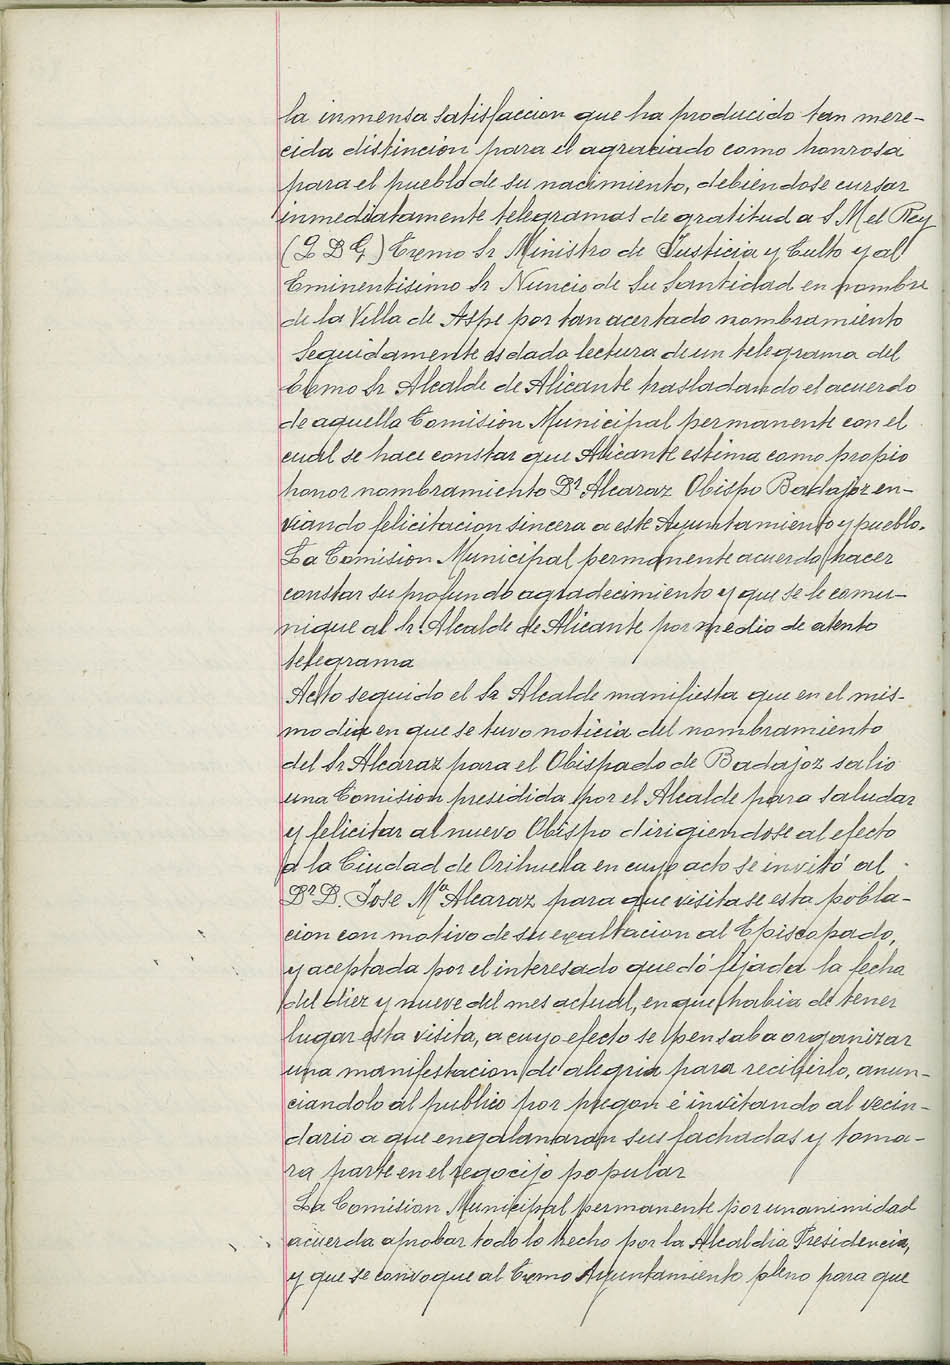 la inmensa satisfaccion que ha producido tan mere-
cida distincion para el agraciado como honrosa
para el pueblo de su nacimiento, debiendose cursar
inmediatamente telegramas de gratitud a S M el Rey
(Q D G,) Excmo Sr Ministro de Justicia y Culto y al
Eminentisimo Sr Nuncio de Su Santidad en nombre
de la Villa de Aspe por tan acertado nombramiento
Seguidamente es dada lectura de un telegrama del
Excmo Sr Alcalde de Alicante trasladando el acuerdo
de aquella Comision Municipal permanente con el
cual se hace constar que Alicante estima como propio
honor nombramiento Dr Alcaraz Obispo Badajoz en-
viando felicitacion sincera a este Ayuntamiento y pueblo.
La Comision Municipal permanente acuerda hacer
constar su profundo agradecimiento y que se le comu-
nique al Sr. Alcalde de Alicante por medio de atento
telegrama
Acto seguido el Sr Alcalde manifiesta que en el mis-
mo dia en que se tuvo noticia del nombramiento
del Sr Alcaraz para el Obispado de Badajoz salio
una Comision presidida por el Alcalde para saludar
y felicitar al nuevo Obispo dirigiendose al efecto
a la Ciudad de Orihuela en cuyo acto se invitó al
Dr D. Jose Mª Alcaraz para que visitase esta pobla-
cion con motivo de su exaltacion al Episcopado,
y aceptada por el interesado quedó fijada la fecha
del diez y nueve del mes actual, en que habia de tener
lugar esta visita, a cuyo efecto se pensaba organizar
una manifestacion de alegria para recibirlo, anun-
ciandolo al publico por pregon é invitando al vecin-
dario a que engalanaran sus fachadas y toma-
ra parte en el regocijo popular
La Comision Municipal permanente por unanimidad
acuerda aprobar todo lo hecho por la Alcaldia Presidencia,
y que se convoque al Excmo Ayuntamiento pleno para que